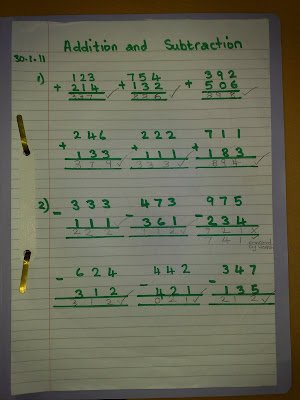 Addition and Subtraction
30.1.11
1) 123 754 392
+ 214 + 132 + 506
337 886 898
246 222 711
+ 133 + 111 + 183
379 333 894
2) - 333 - 473 - 975
111 361 234
222 112
741
624 442 347
- 312 - 421 - 135
312 021 212